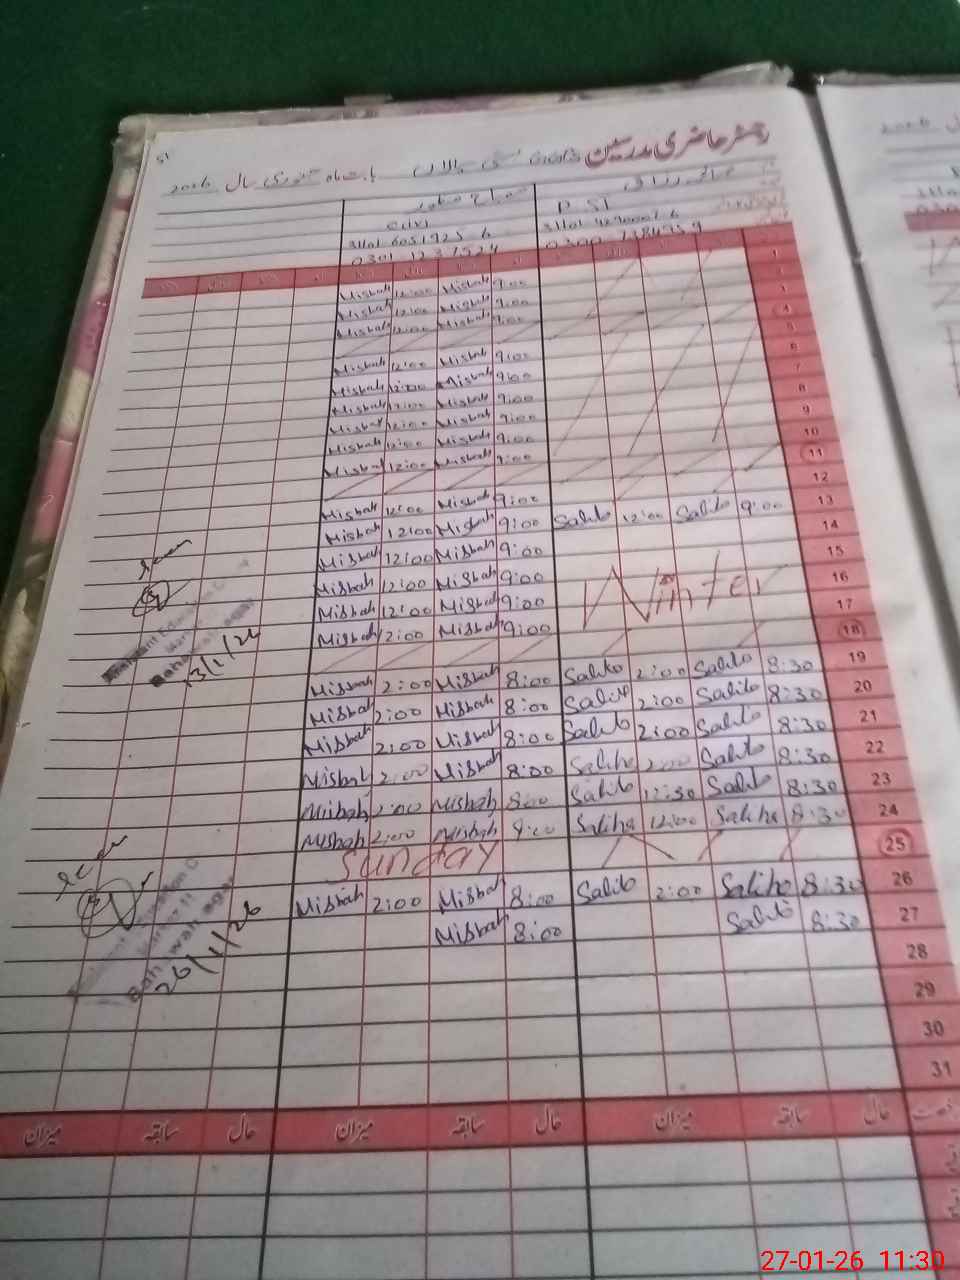 رجسٹر حاضری مدرسین بستی بالاں بابت ماہ جنوری سال 2026
51
مصباح منظور
صالحہ رزاق
PST
31101 6051925 6
0301 1237524
0300 7384959
1
Misbah 12:00 Misbah 9:00
Misbah 12:00 Misbah 9:00 3
Misbah 12:00 Misbah 9:00
4
5
Misbah 12:00 Misbah 9:00 6
Misbah 12:00 Misbah 9:00 7
Misbah 12:00 Misbah 9:00 8
Misbah 12:00 Misbah 9:00 9
Misbah 12:00 Misbah 9:00 10
Misbah 12:00 Misbah 9:00
11
Misbah 12:00 Misbah 9:00 12
Misbah 12:00 Misbah 9:00 Saliho 12:00 Saliho 9:00 13
Misbah 12:00 Misbah 9:00 14
Misbah 12:00 Misbah 9:00 15
Misbah 12:00 Misbah 9:00 Winter 16
Misbah 12:00 Misbah 9:00 17
18
13/1/26
Misbah 2:00 Misbah 8:00 Saliho 2:00 Saliho 8:30 19
Misbah 2:00 Misbah 8:00 Saliho 2:00 Saliho 8:30 20
Misbah 2:00 Misbah 8:00 Saliho 2:00 Saliho 8:30 21
Misbah 2:00 Misbah 8:00 Saliha 2:00 Saliho 8:30 22
Misbah 2:00 Misbah 8:00 Saliho 12:30 Saliho 8:30 23
Misbah 2:00 Misbah 9:00 Saliha 12:00 Saliha 8:30 24
Sunday 25
Misbah 2:00 Misbah 8:00 Saliho 2:00 Saliho 8:30 26
Misbah 8:00 Saliho 8:30 27
26/1/26
28
29
30
31
حال سابقہ میزان حال سابقہ میزان حال سابقہ میزان
27-01-26 11:30